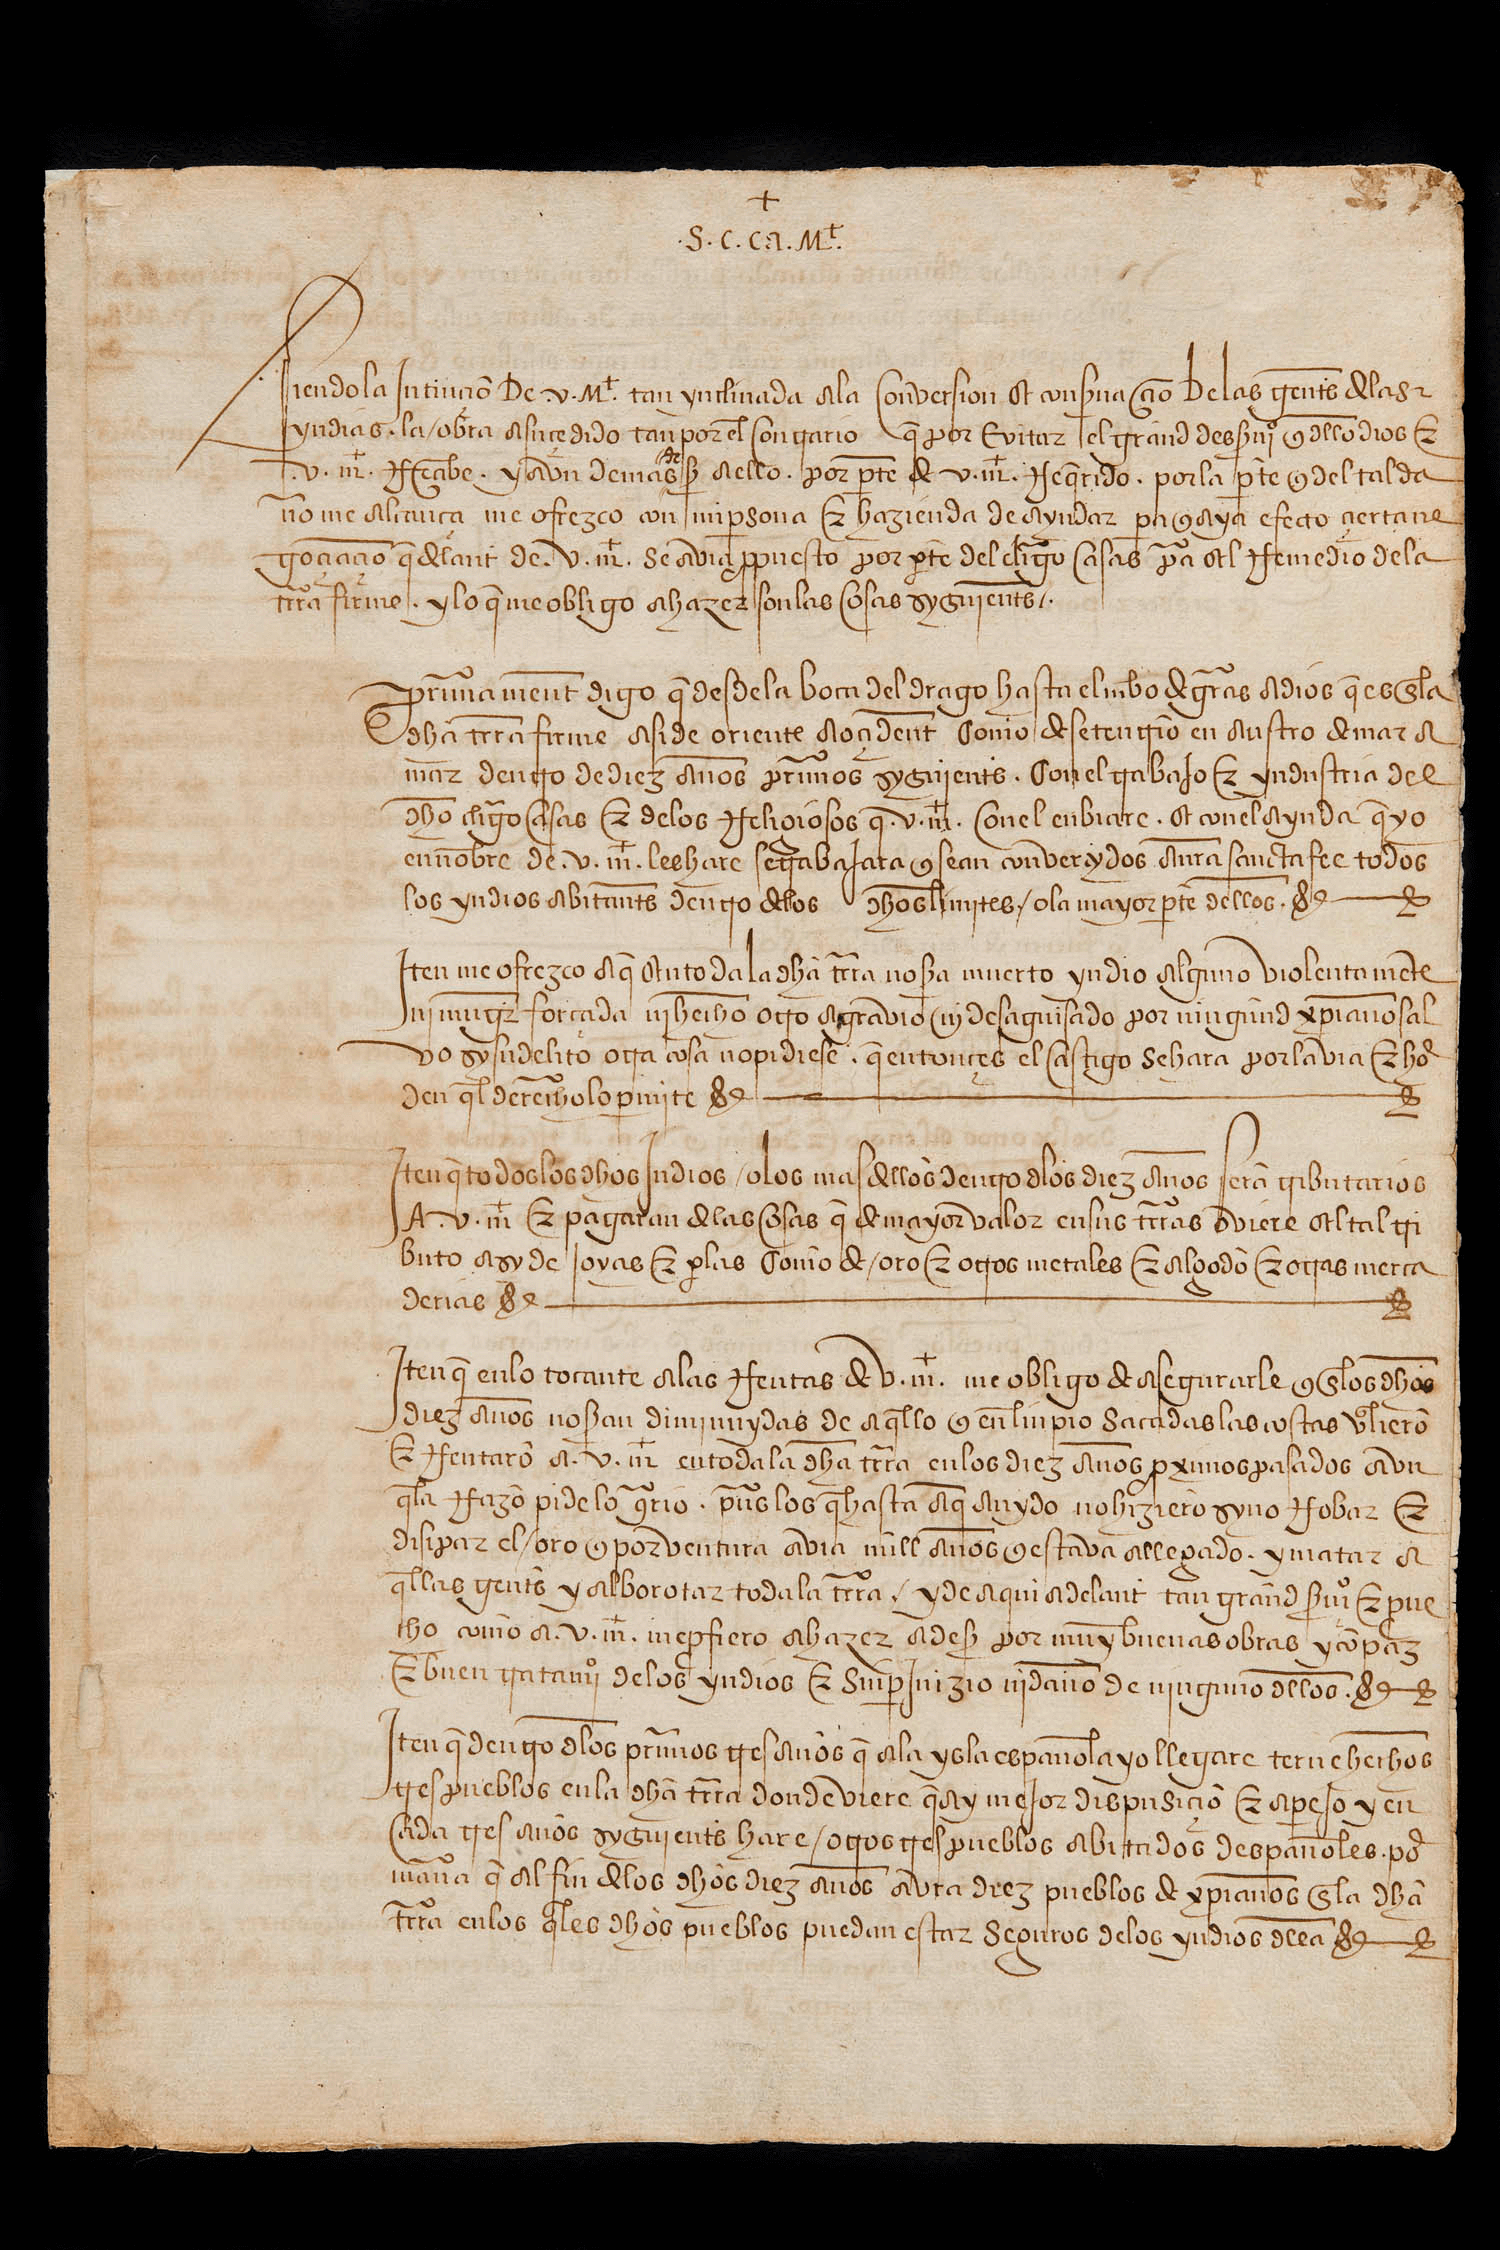 +
.S. C. Ca. M.t
Siendo la Intinciō De .v. M.t tan ynclinada a la Conversion et consṽaçiō De las gentes de las
yndias . la / obra a sucedido tan por el contrario q̄ por Evitar el grand desṽiçio q̄ dello dios &
.v. m̄. Reçibe . y avn demas de ser aello . por pte de v. m̄. Reqrido . por la pte q̄ del tal da
ño me alcança me ofrezco con mi psona & hazienda de ayudar pa q̄ aya efecto çierta ne
goçiaçiō q̄ delant de. v. m̄. se avia ppuesto por pte del cligo Casas pa el Remedio de la
trra firme . y lo q̄ me obligo a hazer son las Cosas syguientes /.
prīmamente digo q̄ desde la boca del drago hasta el cabo de grās a dios q̄ es en la
dhā trra firme asi de oriente a oçidente Como de setentriō en austro de mar a
mar dentro de diez años prīmos syguientes . Con el trabajo & yndustria del
dho cligo Casas & de los Religiosos q̄ .v. m̄. Con el enbiare . et con el ayuda q̄ yo
en nōbre de .v. m̄. les hare se trabajara q̄ sean converɥdos a nra sancta fee todos
los yndios abitantes dentro de los dhos limites / o la mayor pte dellos .
Iten me ofrezco a q̄ en toda la dhā trra no sa muerto yndio alguno violentamēte
ni muger forçada ni hecho otro agravio ni desaguisado por ningund xpiano sal
vo sy su delito otra cosa no pidiese . q̄ entonçes el castigo se hara por la via & hor
den ql derecho lo pmite
Iten q̄ todos los dhos Indios / o los mas dellos dentro dlos diez años serā tributarios
A .v. m̄ & pagaran de las Cosas q̄ de mayor valor en sus trras oviere el tal tri
buto asy de joyas & plas Como de / oro & otros metales & algodō & otras merca
derias
Iten q̄ en lo tocante a las Rentas de v. m̄. me obligo de asegurarle q̄ en los dhos
diez años no sean diminuydas de aqllo q̄ en linpio sacadas las costas valierō
& Rentarō a. v. m̄ en toda la dhā trra en los diez años pximos pasados avn
q̄ la Razō pide lo qrio . pues los q̄ hasta aq̄ an ydo no hizierō syno Robar &
disipar el / oro q̄ por ventura avia mill años q̄ estava allegado . y matar a
qllas gentes y alborotar toda la trra / y de aqui adelant tan grand sṽi.o & prove
cho como a. v. m̄. me pfiero a hazer a de ser por muy buenas obras y cō paz
& buen tratami.o de los yndios & sin pjuizio ni daño de ninguno dellos .
Iten q̄ dentro dlos prīmos tres años q̄ a la ysla española yo llegare terne hechos
tres pueblos en la dhā trra donde viere q̄ ay mejor dispusiçiō & aparejo y en
Cada tres años syguientes hare / otros tres pueblos abitados despañoles . por
manā q̄ al fin de los dhos diez años avra diez pueblos de xpianos en la dhā
trra en los qles dhos pueblos puedan estar seguros de los yndios dlla